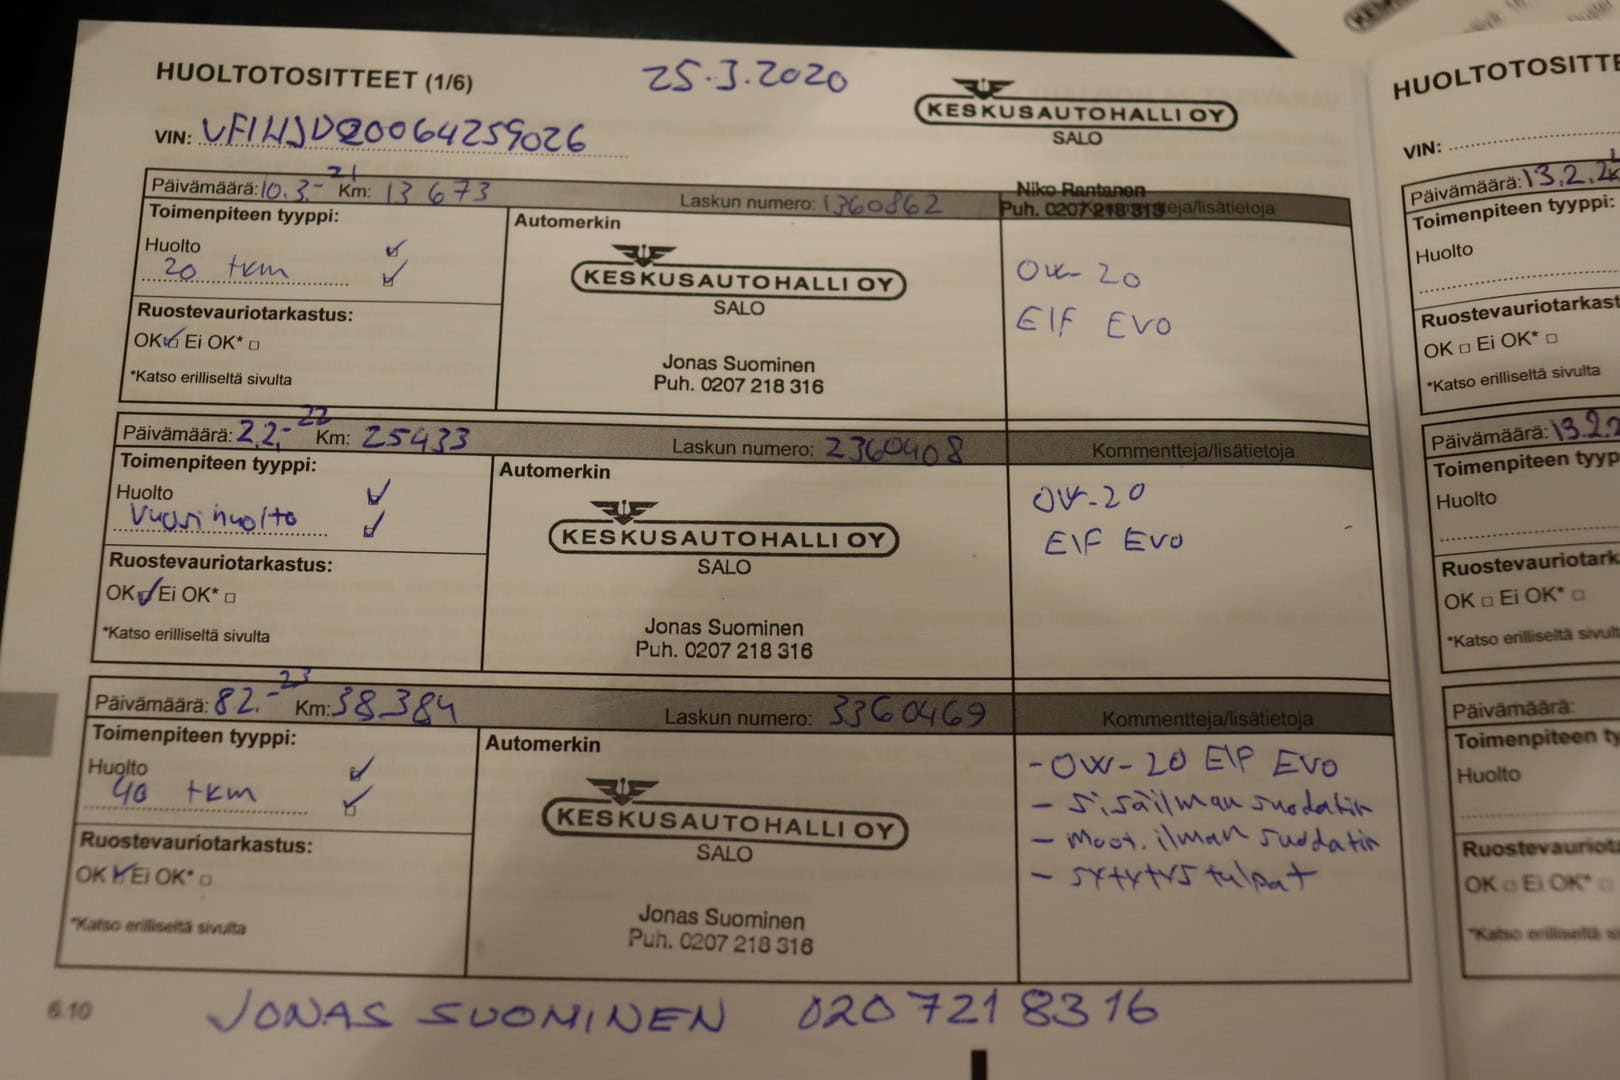 HUOLTOTOSITTEET (1/6)
25.3.2020
KESKUSAUTOHALLI OY
SALO
VIN: VF1HJD20064259026
Niko Rantanen
Puh. 0207 218 318
Päivämäärä: 10.3.-21 Km: 13 673 Laskun numero: 1360862 Kommentteja/lisätietoja
Toimenpiteen tyyppi:
Huolto
20 tkm
Ruostevauriotarkastus:
OK Ei OK*
*Katso erilliseltä sivulta
Automerkin
KESKUSAUTOHALLI OY
SALO
Jonas Suominen
Puh. 0207 218 316
0W-20
Elf EVO
Päivämäärä: 2.2.-22 Km: 25433 Laskun numero: 2360408 Kommentteja/lisätietoja
Toimenpiteen tyyppi:
Huolto
Vuosihuolto
Ruostevauriotarkastus:
OK Ei OK*
*Katso erilliseltä sivulta
Automerkin
KESKUSAUTOHALLI OY
SALO
Jonas Suominen
Puh. 0207 218 316
0W-20
Elf Evo
Päivämäärä: 8.2.-23 Km: 38384 Laskun numero: 3360469 Kommentteja/lisätietoja
Toimenpiteen tyyppi:
Huolto
40 tkm
Ruostevauriotarkastus:
OK Ei OK*
*Katso erilliseltä sivulta
Automerkin
KESKUSAUTOHALLI OY
SALO
Jonas Suominen
Puh. 0207 218 316
- 0W-20 Elf Evo
- sisäilman suodatin
- moot. ilman suodatin
- sytytystulpat
6.10
JONAS SUOMINEN 0207218316
HUOLTOTOSITTE
VIN:
Päivämäärä: 13.2.2
Toimenpiteen tyyppi:
Huolto
Ruostevauriotarkast
OK Ei OK*
*Katso erilliseltä sivulta
Päivämäärä: 13.2.2
Toimenpiteen typp
Huolto
Ruostevauriotark
OK Ei OK*
*Katso erilliseltä sivulta
Päivämäärä:
Toimenpiteen ty
Huolto
Ruostevauriota
OK Ei OK*
*Katso erilliseltä si